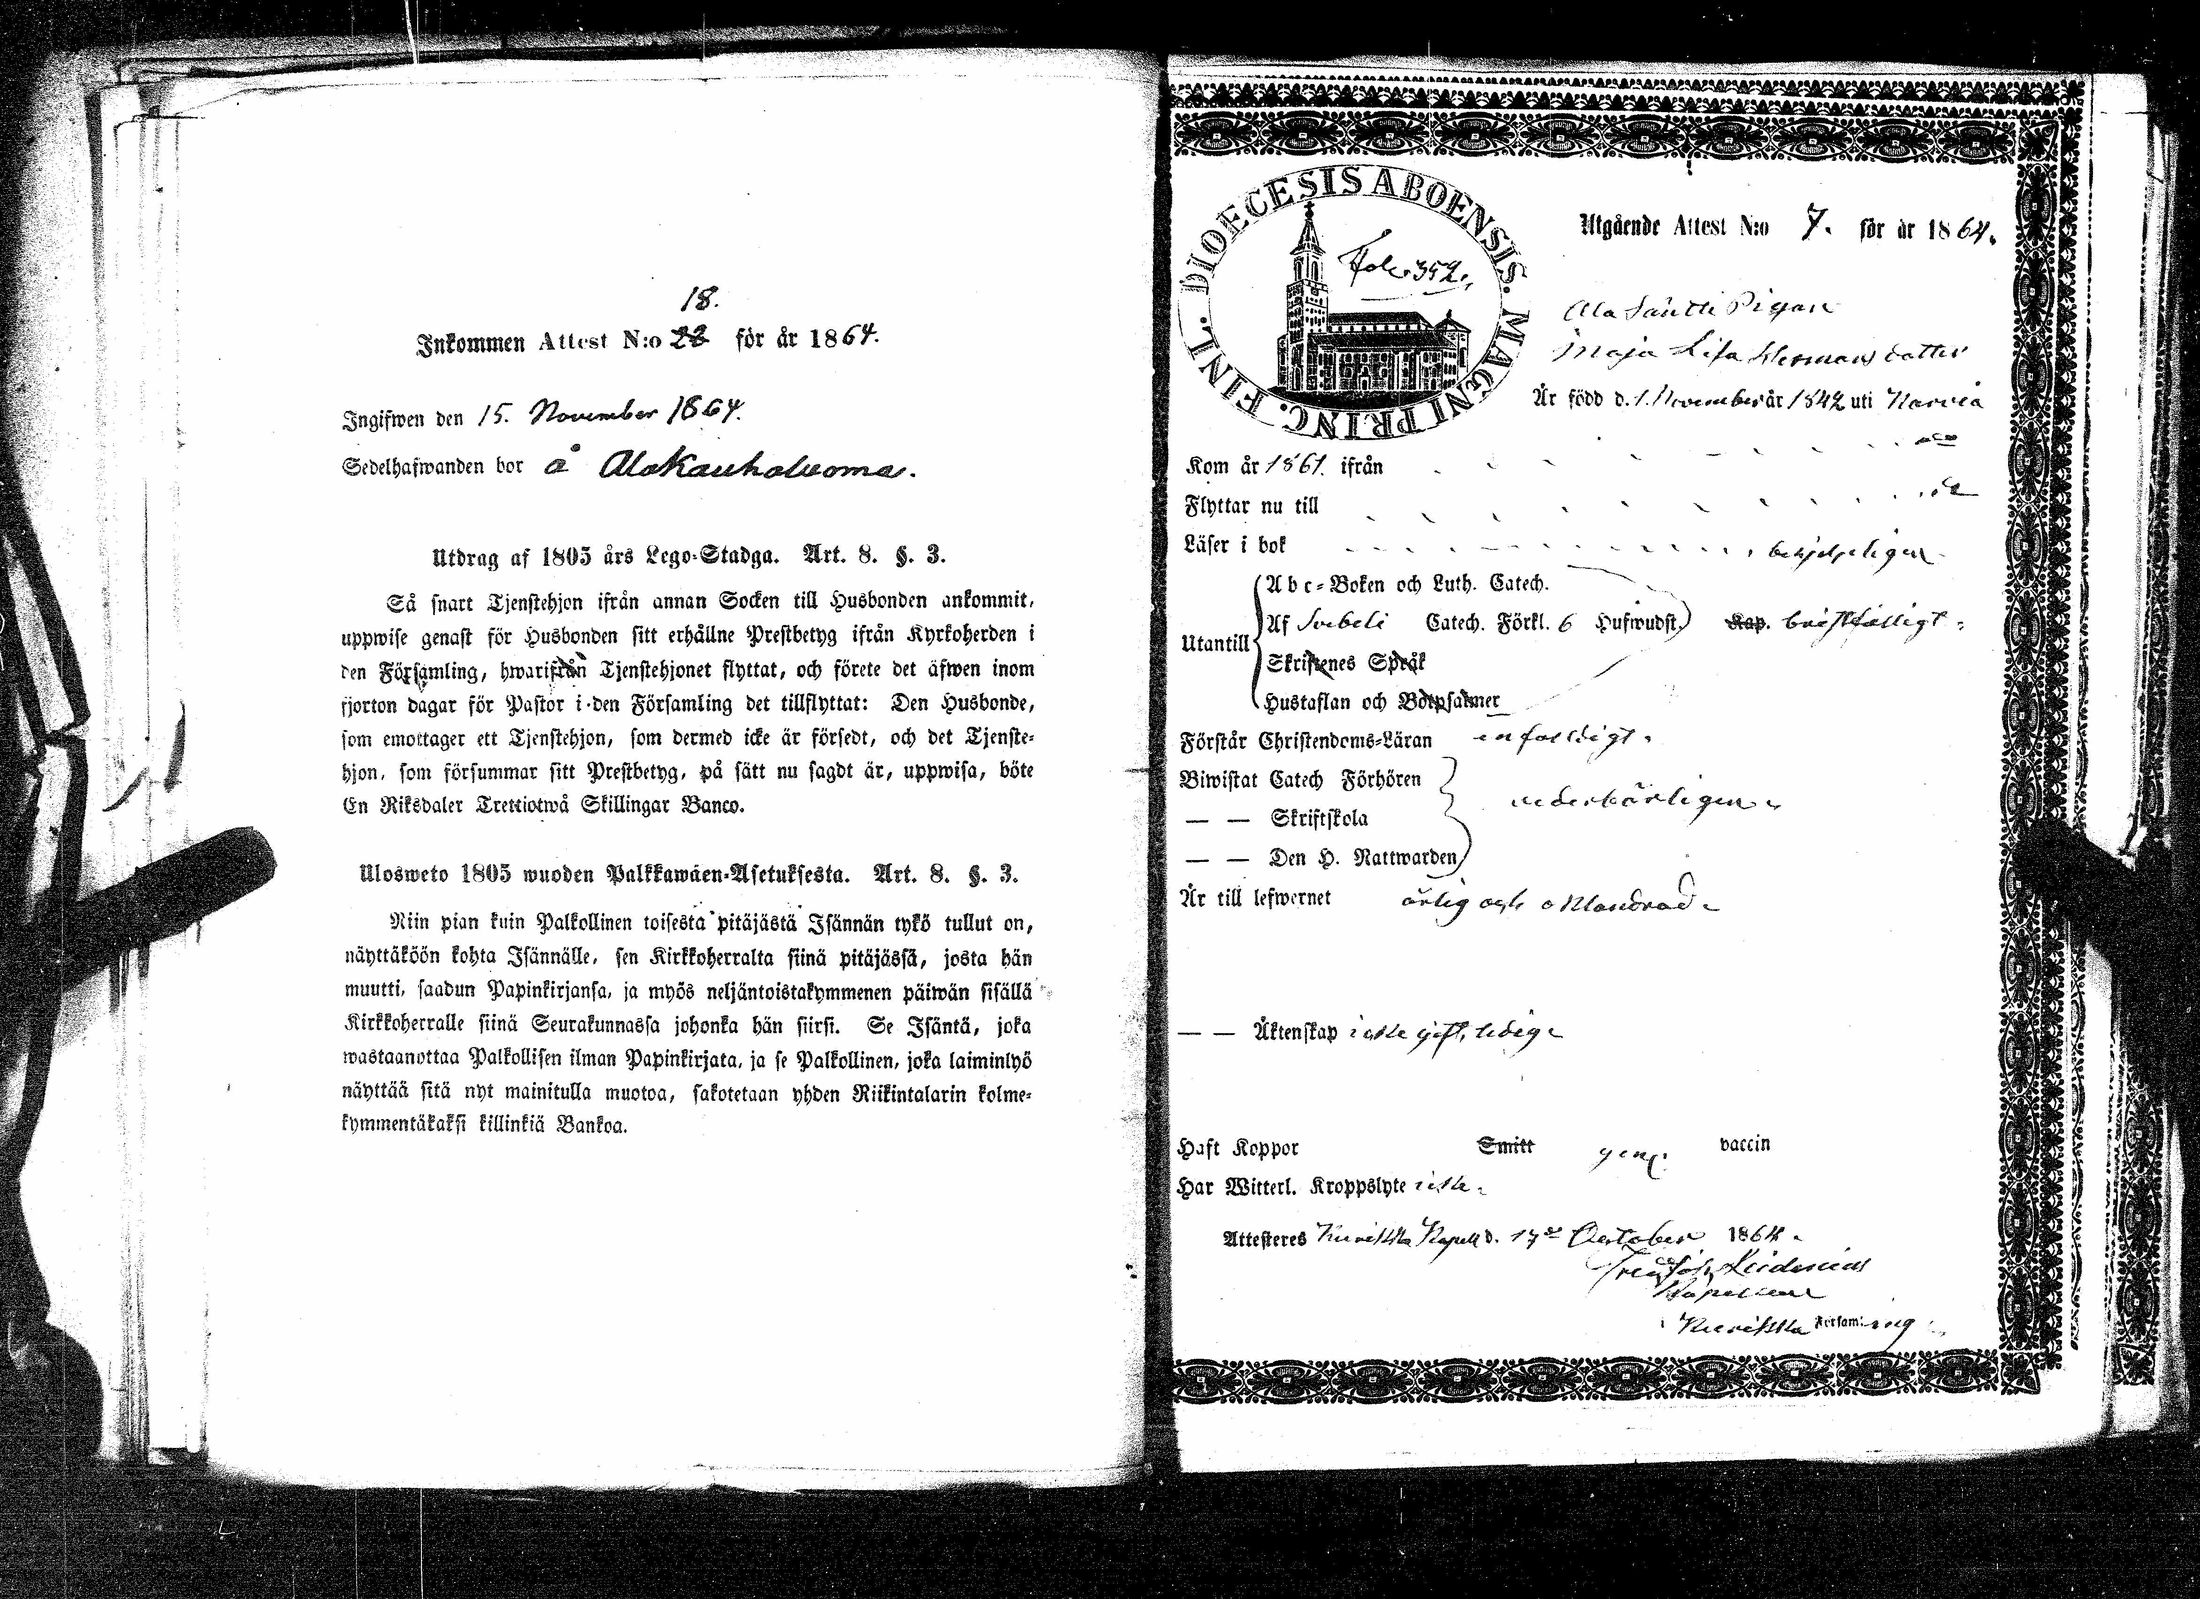 18.
Inkommen Attest N:o 22 för år 1864.
Ingifwen den 15. November 1864.
Sedelhafwanden bor å Alakauhaluoma.
Utdrag af 1805 års Lego-Stadga. Art. 8. §. 3.
Så snart Tjenstehjon ifrån annan Socken till Husbonden ankommit,
uppwise genast för Husbonden sitt erhållne Prestbetyg ifrån Kyrkoherden i
den Församling, hwarifrån Tjenstehjonet flyttat, och förete det äfwen inom
fjorton dagar för Pastor i den Församling det tillflyttat: Den Husbonde,
som emottager ett Tjenstehjon, som dermed icke är försedt, och det Tjenste-
hjon, som försummar sitt Prestbetyg, på sätt nu sagdt är, uppwisa, böte
En Riksdaler Trettiotwå Skillingar Banco.
Ulosweto 1805 wuoden Palkkawäen-Asetuksesta. Art. 8. §. 3.
Niin pian kuin Palkollinen toisesta pitäjästä Isännän tykö tullut on,
näyttäköön kohta Isännälle, sen Kirkkoherralta siinä pitäjässä, josta hän
muutti, saadun Papinkirjansa, ja myös neljäntoistakymmenen päiwän sisällä
Kirkkoherralle siinä Seurakunnassa johonka hän siirsi. Se Isäntä, joka
wastaanottaa Palkollisen ilman Papinkirjata, ja se Palkollinen, joka laiminlyö
näyttää sitä nyt mainitulla muotoa, sakotetaan yhden Riikintalarin kolme-
kymmentäkaksi killinkiä Bankoa.
DIOECESIS ABOENSIS. MAGNI PRINC. FINL.
Fol. 352.
Utgående Attest N:o 7. för år 1864.
Ala Säntti Pigan
Maja Lisa Hermansdotter
Är född d. 1. November år 1842 uti Norvia
Kom år 1861. ifrån
Flyttar nu till
Läser i bok behjelpligen
Abc-Boken och Luth. Catech.
Utantill Af Svebeli Catech. Förkl. 6 Hufwudst. Kap. bristfälligt
Skriftenes Språk
Hustaflan och Botpsalmer
Förstår Christendoms-Läran enfaldigt.
Biwistat Catech Förhören
— — Skriftskola wederbörligen
— — Den H. Nattwarden
Är till lefwernet ärlig och oklandrad
— — Äktenskap icke gift, ledig
Haft Koppor Smitt gen. vaccin
Har Witterl. Kroppslyte icke
Attesteres Kurikka Kapell d. 17de October 1864
Kapellan
i Kurikka Församl:ing